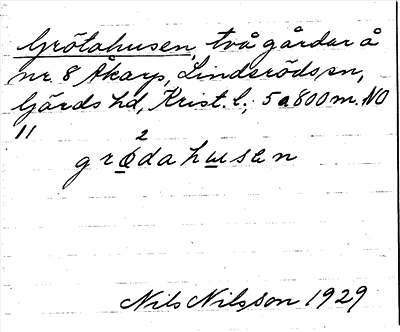 Grötahusen, två gårdar å
nr. 8 Åkarp, Linderöds sn,
Gärds hd, Krist. l.; 5 a 800 m. NO
11
2
grödahusen
Nils Nilsson 1929